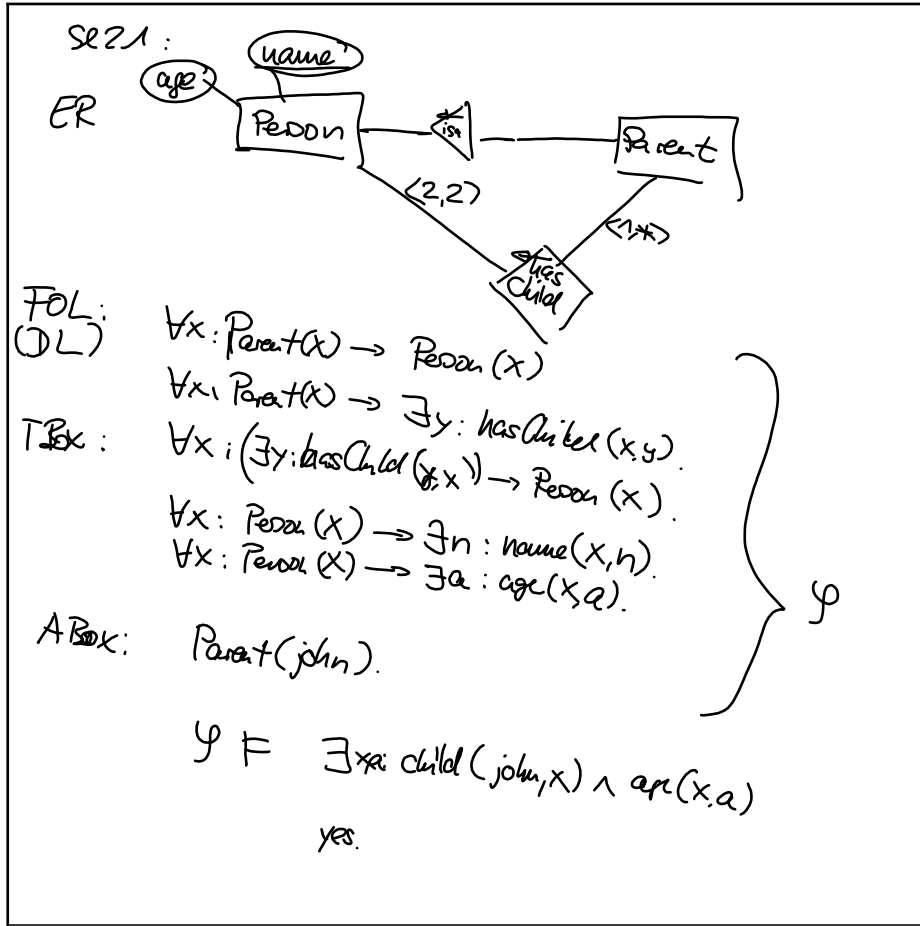 SE21:
name
age
ER
Person
isa
Parent
<2,2>
<1,*>
has
Child
FOL:
(DL)
∀x: Parent(x) → Person(x)
∀x: Parent(x) → ∃y: hasChild(x,y).
TBox: ∀x: (∃y: hasChild(y,x)) → Person(x).
∀x: Person(x) → ∃n: name(x,n).
∀x: Person(x) → ∃a: age(x,a).
φ
ABox: Parent(john).
φ ⊨ ∃x,a: child(john,x) ∧ age(x,a)
yes.